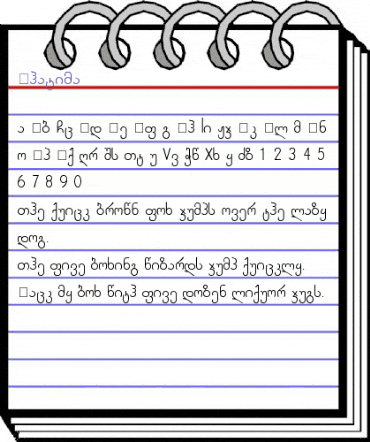 □ჰატიმა
ა □ბ ჩც □დ □ე □ფ გ □ჰ Iი ჟჯ □კ □ლ მ □ნ
ო □პ □ქ ღრ შს თტ უ Vვ ჭწ Xხ ყ ძზ 1 2 3 4 5
6 7 8 9 0
თჰე ქუიცკ ბროწნ ფოხ ჯუმპს ოვერ ტჰე ლაზყ
დოგ.
თჰე ფივე ბოხინგ წიზარდს ჯუმპ ქუიცკლყ.
□აცკ მყ ბოხ წიტჰ ფივე დოზენ ლიქუორ ჯუგს.